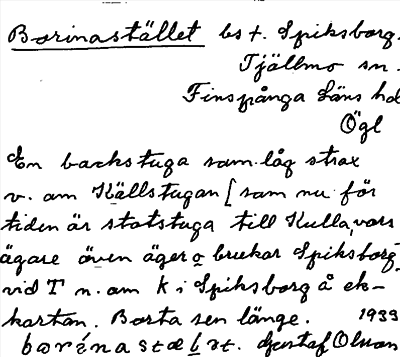 Borinastället bs t. Spiksborg.
Tjällmo sn.
Finspånga Läns hd
Ögl
En backstuga som låg strax
v. om Källstugan [som nu för
tiden är statstuga till Kulla, vars
ägare även äger o brukar Spiksborg]
vid T n. om k i Spiksborg å ek-
kartan. Borta sen länge. 1933
Gustaf Olson